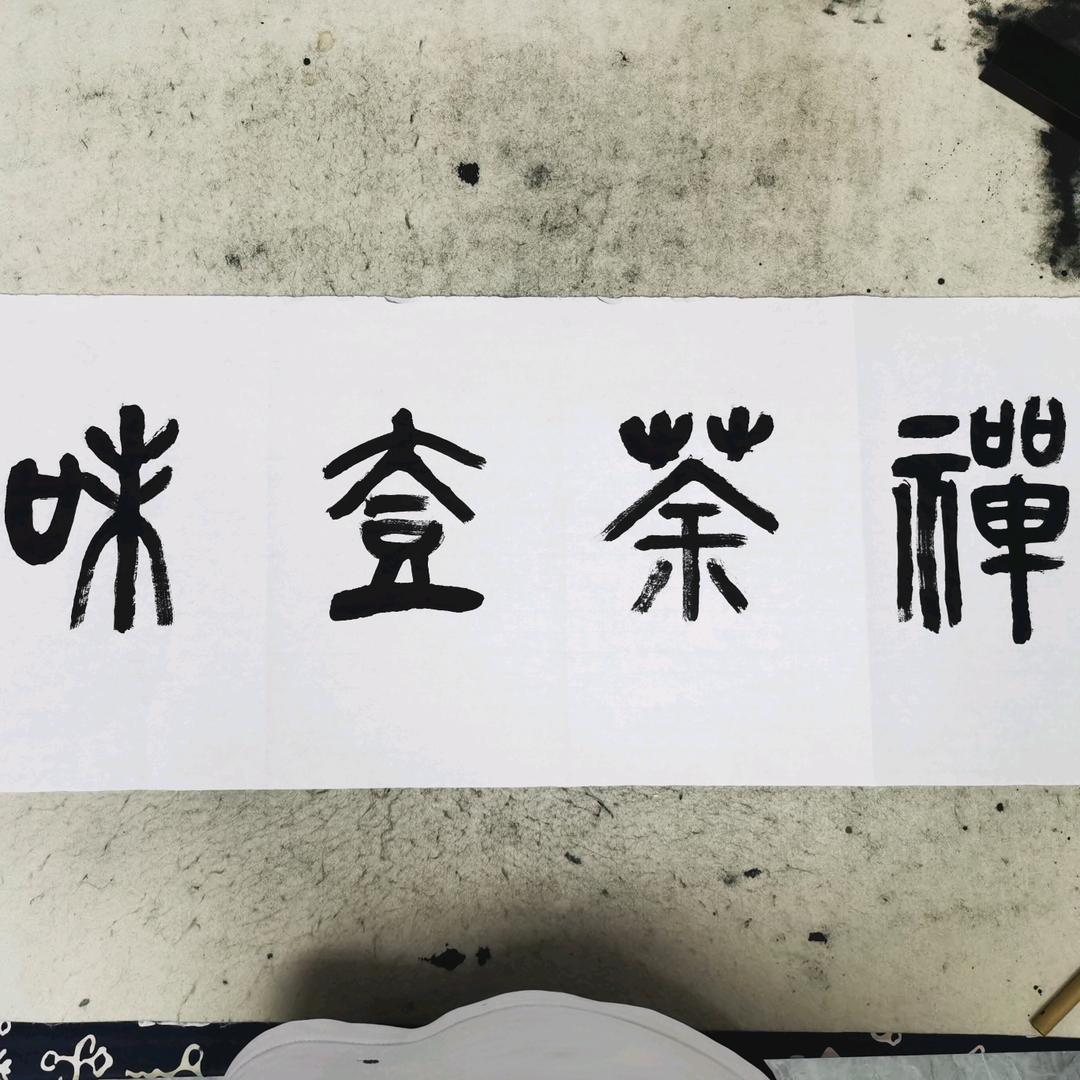 禪茶壹味